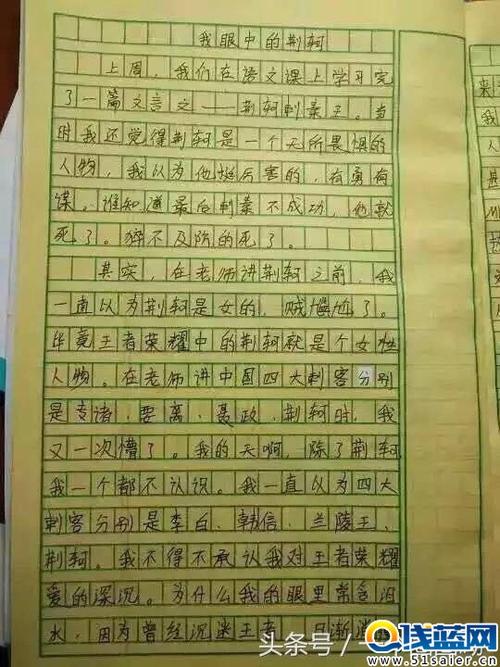 我眼中的荆轲
上周，我们在语文课上学习完
了一篇文言之——荆轲刺秦王。当
时我还觉得荆轲是一个无所畏惧的
人物，我以为他挺厉害的，有勇有
谋。谁知道最后刺秦不成功，他就
死了。猝不及防的死了。
其实，在老师讲荆轲之前，我
一直以为荆轲是女的，贼尴尬了。
毕竟王者荣耀中的荆轲就是个女性
人物。在老师讲中国四大刺客分别
是专诸，要离，聂政，荆轲时，我
又一次懵了。我的天啊，除了荆轲
我一个都不认识。我一直以为四大
刺客分别是李白、韩信、兰陵王、
荆轲。我不得不承认我对王者荣耀
爱的深沉。为什么我的眼里常含泪
水，因为曾经沉迷王者，日渐消
头条号/
浅蓝网
www.51sxior.cn